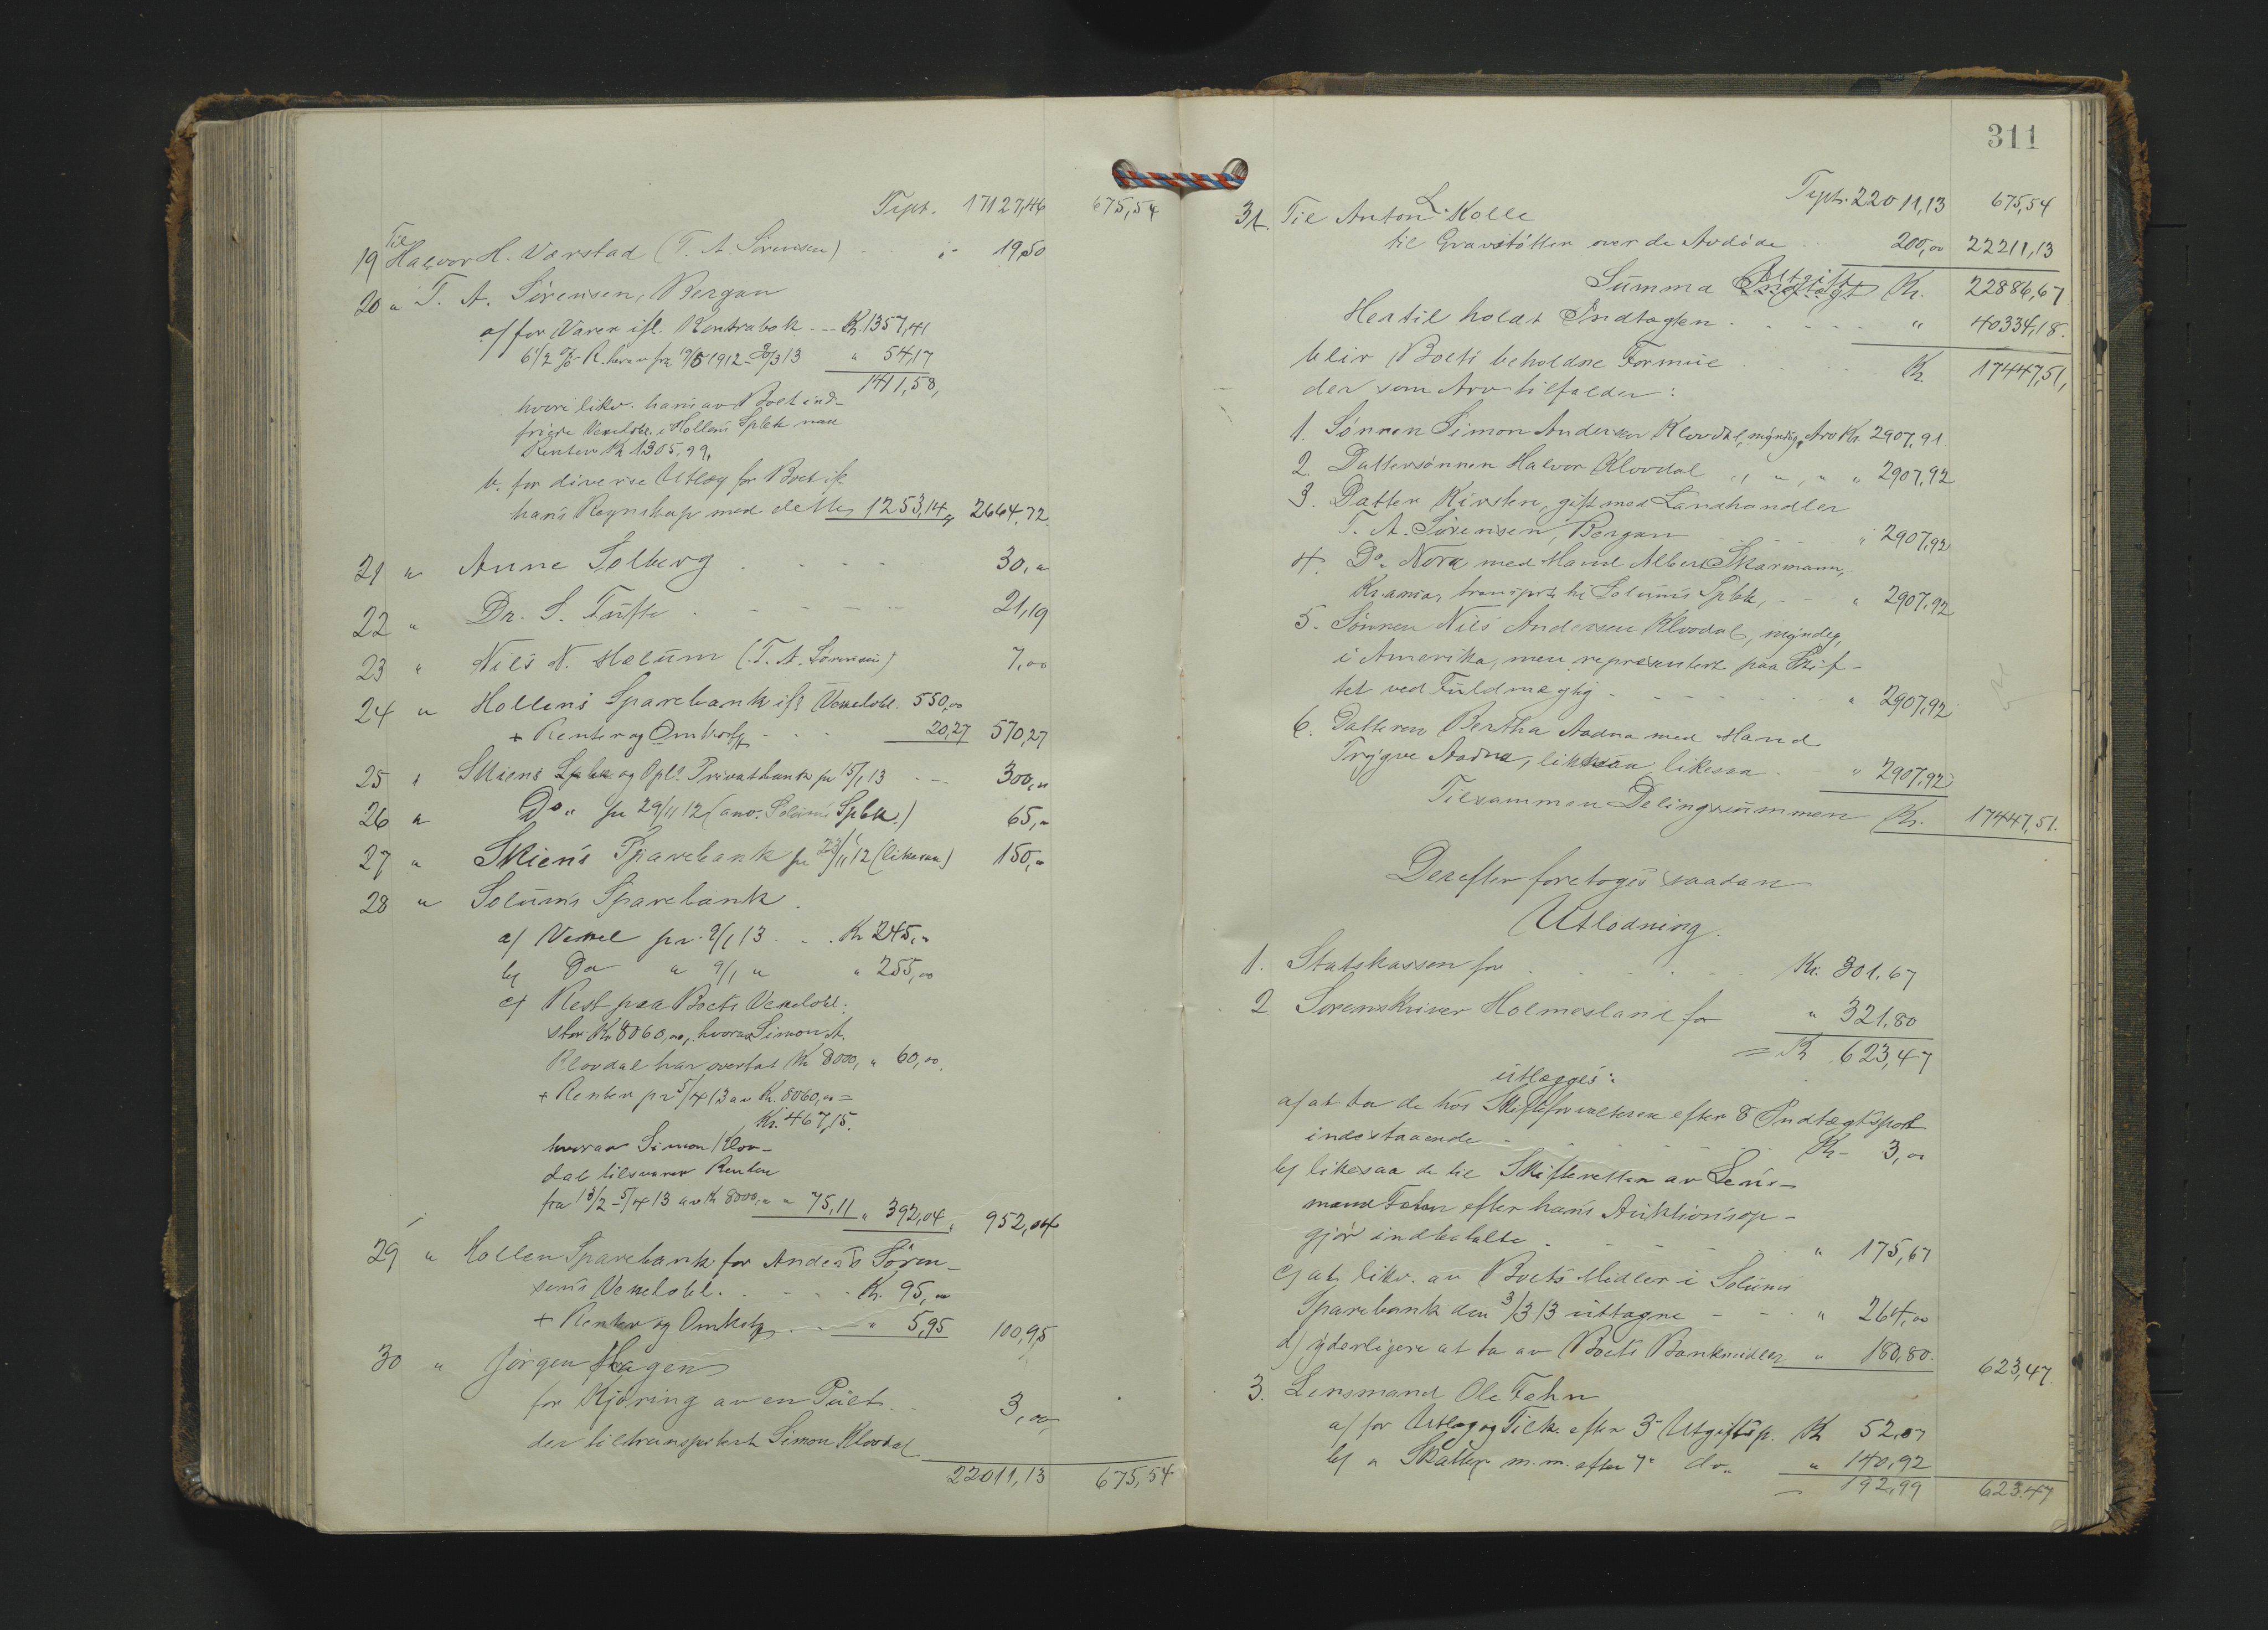 Tspt. 17127,46 675,54
Til
19 Halvor H. Værstad (T. A. Sørensen) 19,50
20 " T. A. Sørensen, Bergan
a/ for Varer ifl. Kontrabok Kr. 1357,41
6 1/2 % R. herav fra 19/5 1912 - 20/3 13 " 54,17
1411,58,
hvori likv. hans av Boet ind-
friede Vexelobl. i Hollens Spbk med
Renter Kr 1305,99.
b. for diverse Utlæg for Boet ifl.
hans Regnskap med dette 1253,14 2664,72.
21 " Anne Solberg 30,"
22 " Dr. S. Tufte 21,19
23 " Nils N. Hælum (T. A. Sørensen) 7,00
24 " Hollens Sparebank ifl. Vexelobl. 550,00
+ Renter og Omkostg. 20,27 570,27
25 " Skiens Spbk og Opl.s Privatbank pr 15/1 13 300,"
26 " Do " pr 29/11 12 (anv. Solums Spbk.) 65,"
27 " Skiens Sparebank pr 23/11 12 (likesaa) 150,"
28 " Solums Sparebank.
a/ Vexel pr. 9/1 13 Kr 245,"
b/ Do " 9/1 " " 255,00
c/ Rest paa Boets Vexelobl.
stor Kr 8060,00, hvorav Simon A.
Klovdal har overtat Kr 8000, " 60,00.
+ Renter pr 5/4 13 av Kr. 8060,00 =
Kr. 467,15.
hvorav Simon Klov-
dal tilsvarer Renten
fra 13/2 - 5/4 13 av Kr 8000," " 75,11 " 392,04, 952,04
29 " Hollen Sparebank for Anders Sören-
sens Vexelobl. Kr. 95,"
+ Renter og Omkostg. " 5,95 100,95
30 " Jörgen Hagen
for Kjöring av en Pult 3,00
der tiltransportert Simon Klovdal
22011,13 675,54
311
Tspt. 22011,13 675,54
31. Til Anton L. Kolle
til Gravstötten over de Avdöde 200,00 22211,13
Summa Utgift Kr. 22886,67
Hertil holdt Indtægten " 40334,18.
blir Boets beholdne Formue Kr. 17447,51,
der som Arv tilfalder:
1. Sønnen Simon Andersen Klovdal, myndig, Arv Kr. 2907,91
2. Dattersønnen Halvor Klovdal " " " " 2907,92
3. Datter Kirsten, gift med Landhandler
T. A. Sørensen, Bergan " 2907,92
4. Do Nora med Mand Albert Skarmann,
Kr.ania, transprt. til Solums Spbk, " 2907,92
5. Sønnen Nils Andersen Klovdal, myndig,
i Amerika, men representert paa Skif-
tet ved Fuldmægtig " 2907,92
6. Datteren Bertha Aadna med Mand
Trygve Aadna, likesaa likesaa " 2907,92
Tilsammen Delingssummen Kr. 17447,51.
Derefter foretoges saadan
Utlodning.
1. Statskassen for Kr. 301,67
2 Sorenskriver Holmesland for " 321,80
= Kr 623,47
utlægges:
a/ at ta de hos Skifteforvalteren efter 8 Indtægtspost
indestaaende Kr. 3,00
b/ likesaa de til Skifteretten av Lens-
mand Fehn efter hans Auktionsop-
gjör indbetalte " 175,67
c/ at likv. av Boets Midler i Solums
Sparebank den 3/3 13 uttagne " 264,00
d/ yderligere at ta av Boets Bankmidler " 180,80. 623,47.
3. Lensmand Ole Fehn
a/ for Utlæg og Tilk. efter 3die Utgiftsp. Kr 52,07
b/ " Skatter m. m. efter 7de do. " 140,92
192,99 623.47